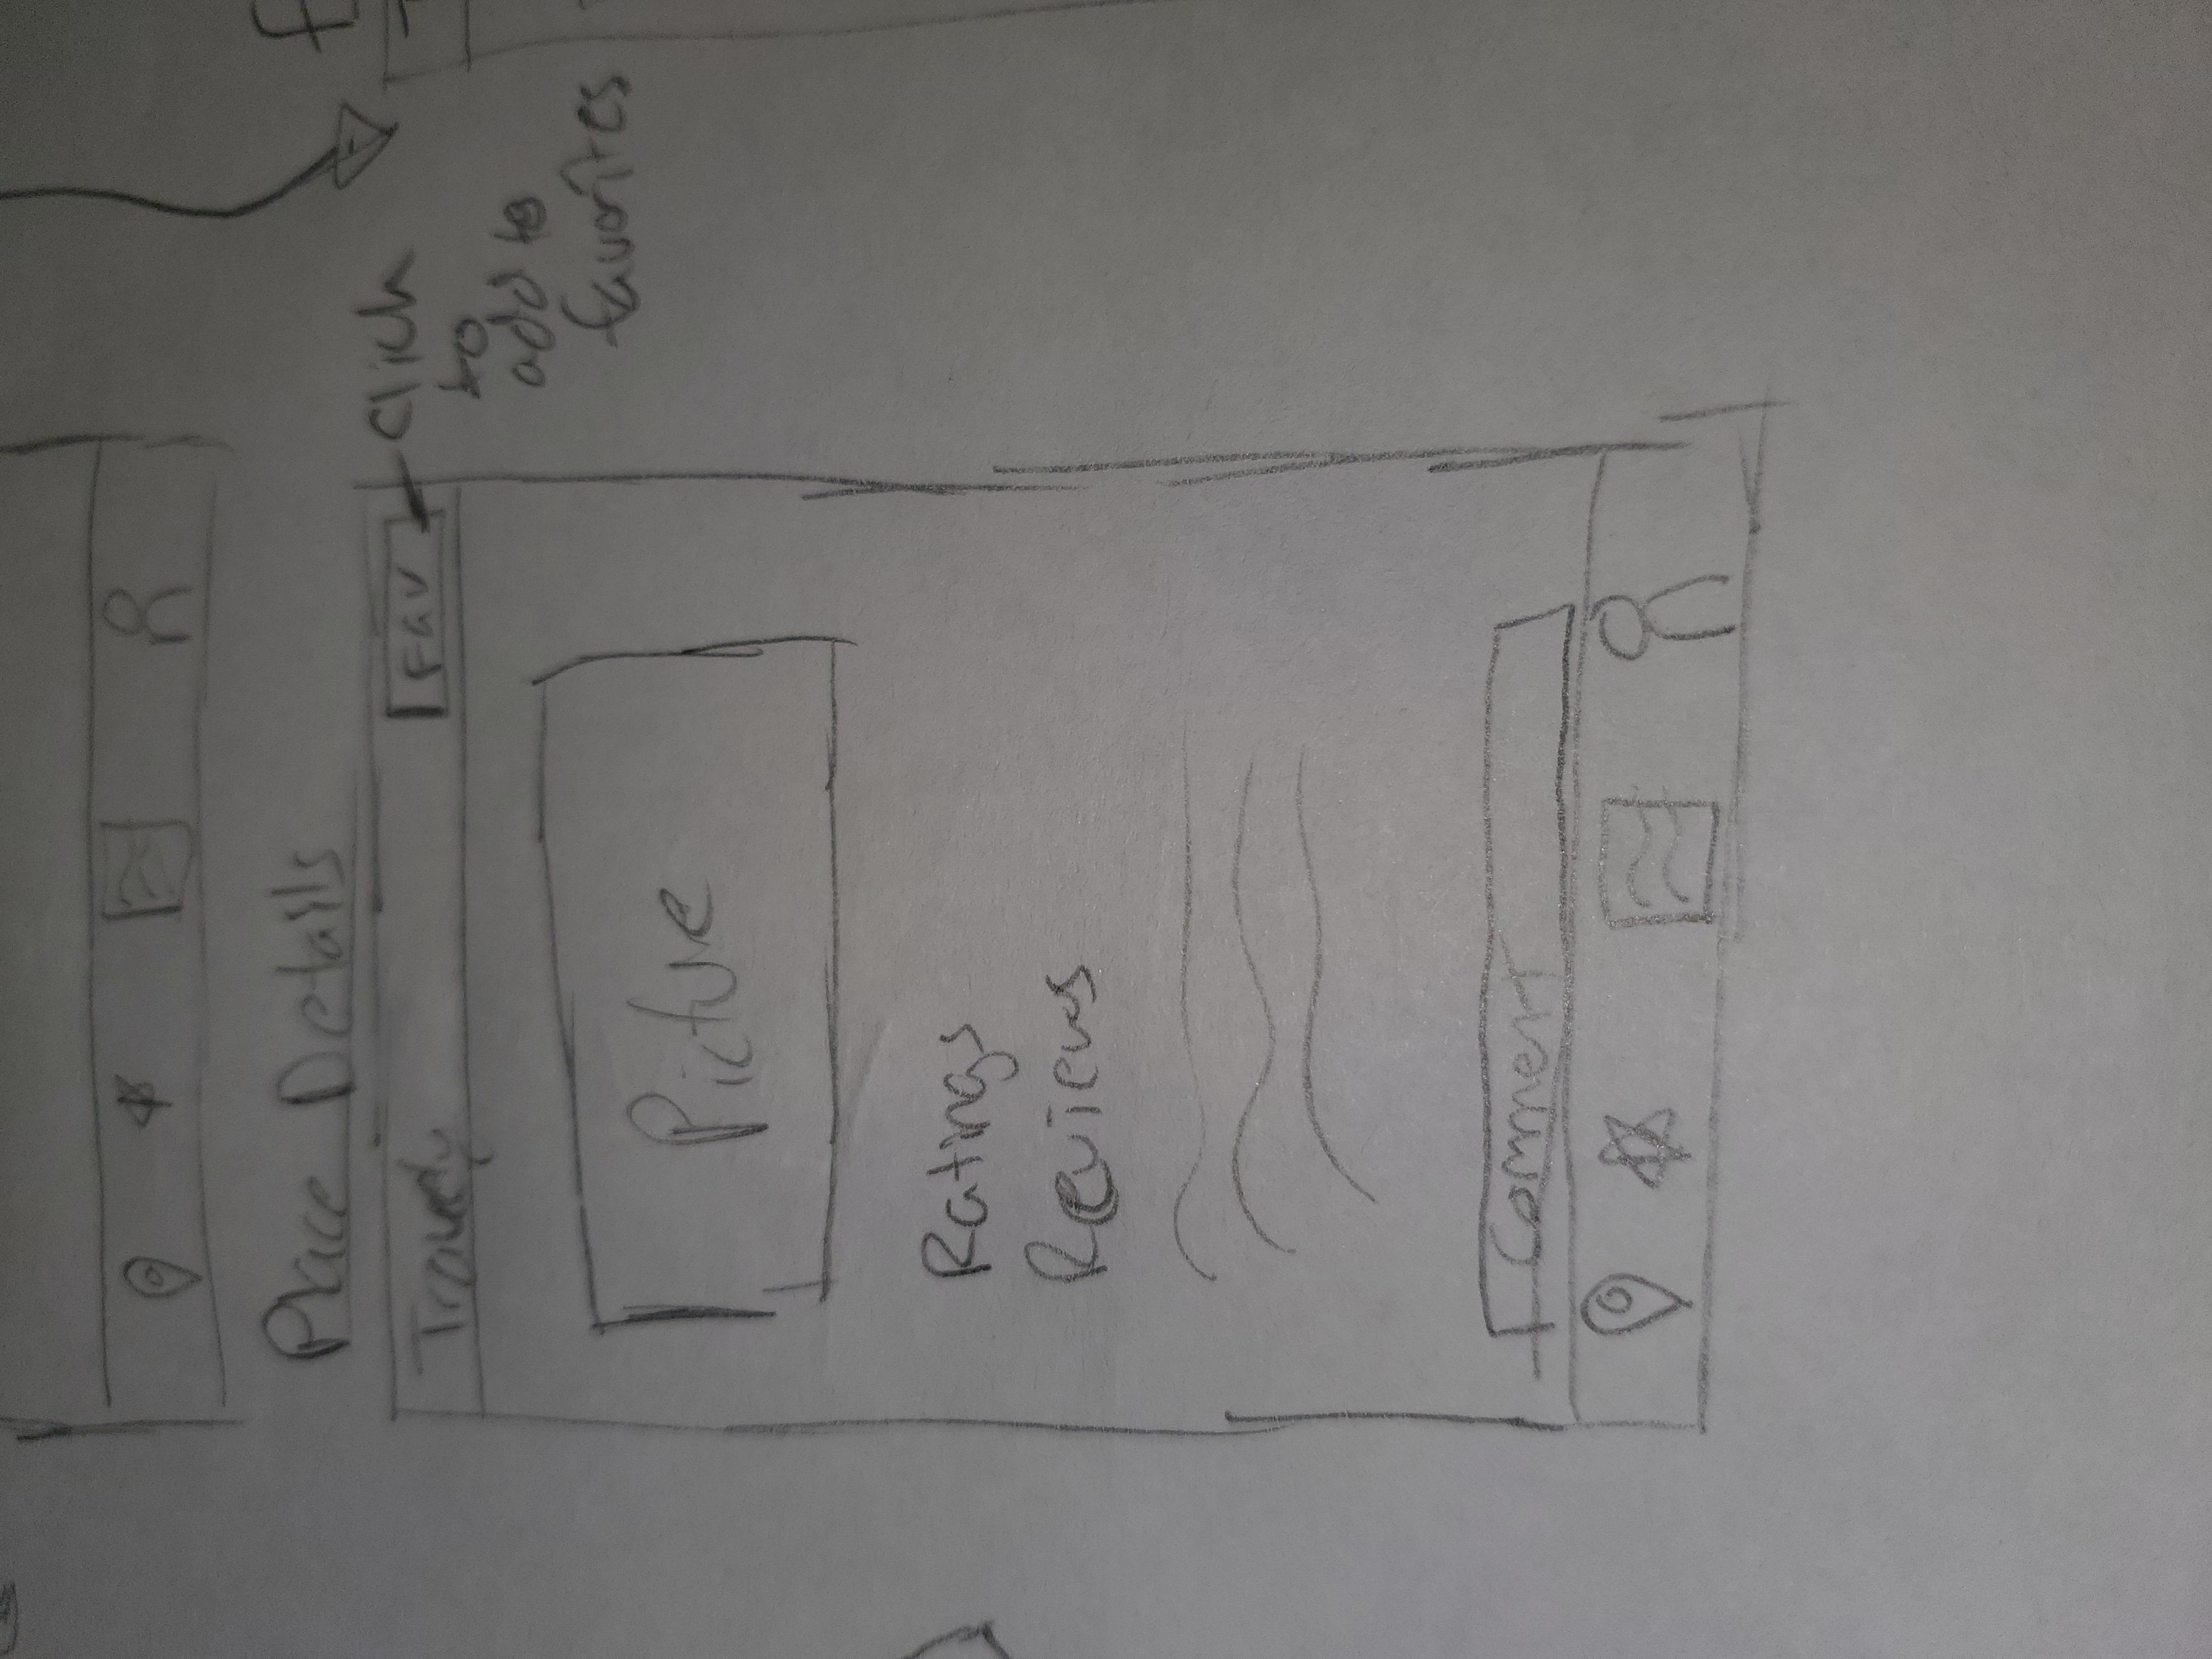 Place Details
Fav
Click
to
add to
favorites
Picture
Ratings
Reviews
Comment